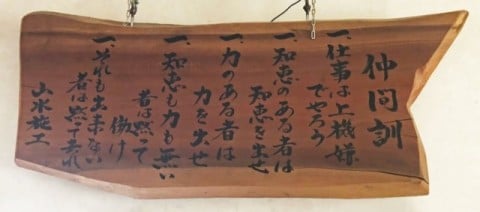 仲間訓
一、仕事は上機嫌
でやろう
一、知恵のある者は
知恵を出せ
一、力のある者は
力を出せ
一、知恵も力も無い
者は黙って
働け
一、それも出来ない
者は黙って去れ
山水施工